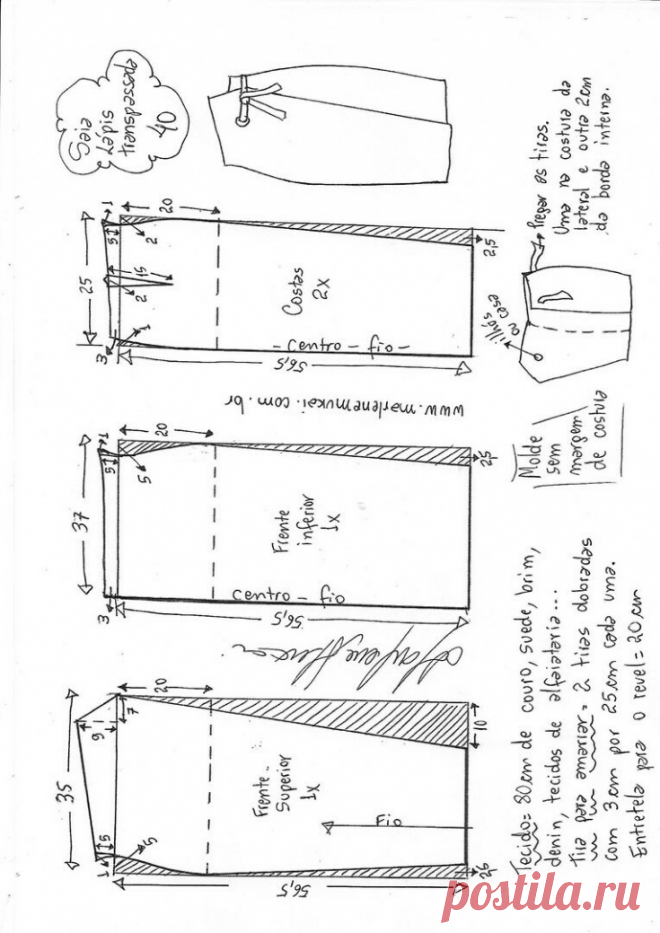 Saia
Lápis
transpassada
40
25
1
5
20
2
15
2
1
3
Costas
2x
- Centro - fio -
56,5
2,5
Pregar as tiras.
Uma na costura da
lateral e outra 2cm
da borda interna.
ilhós
ou casa
www.marlenemukai.com.br
37
1
5
20
5
3
Frente
inferior
1x
Centro - fio
56,5
2,5
Molde
sem
margem
de costura
35
9
7
20
5
1
5
Frente-
Superior
1x
Fio
10
56,5
2,5
Tecido= 80cm de couro, suede, brim,
denin, tecidos de alfaiataria...
Tira para amarrar= 2 tiras dobradas
com 3cm por 25cm cada uma.
Entretela para o revel= 20cm
postila.ru